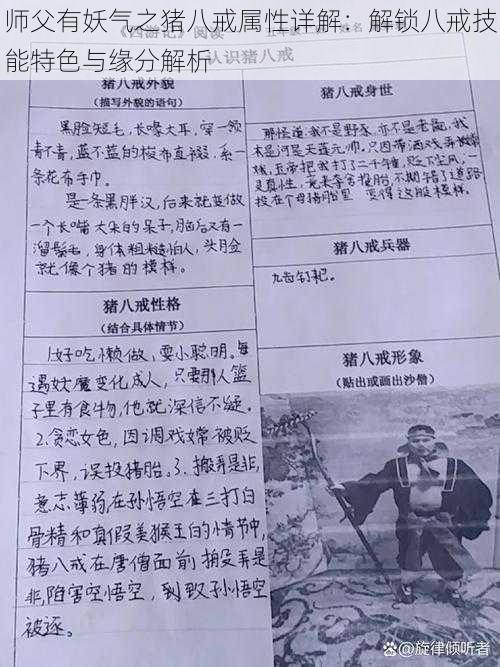 师父有妖气之猪八戒属性详解：解锁八戒技
能特色与缘分解析
《西游记》阅读
认识猪八戒
猪八戒外貌
（描写外貌的语句）
黑脸短毛，长喙大耳，穿一领
青不青，蓝不蓝的梭布直裰，系一
条花布手巾。
是一条黑胖汉，后来就变做
一个长嘴大朵的呆子，脑后又有一
溜鬃毛，身体粗糙怕人，头脸
就像个猪的模样。
猪八戒身世
那怪道：我不是野豕，亦不是老彘，我
本是河是天蓬元帅，只因带酒戏弄嫦
娥，玉帝把我打了二千锤，贬下尘凡，一
灵真性，竟来夺舍投胎，不期错了道路
投在个母猪胎里 变得这般模样。
猪八戒兵器
九齿钉耙。
猪八戒性格
（结合具体情节）
1.好吃懒做，耍小聪明。每
遇妖魔变化成人，只要那人篮
子里有食物，他就深信不疑。
2.贪恋女色，因调戏嫦被贬
下界，误投猪胎。3.搬弄是非，
意志薄弱，在孙悟空在三打白
骨精和真假美猴王的情节中，
猪八戒在唐僧面前搬弄是
非，陷害空悟空，到致孙悟空
被逐。
猪八戒形象
（贴出或画出沙僧）
@旋律倾听者